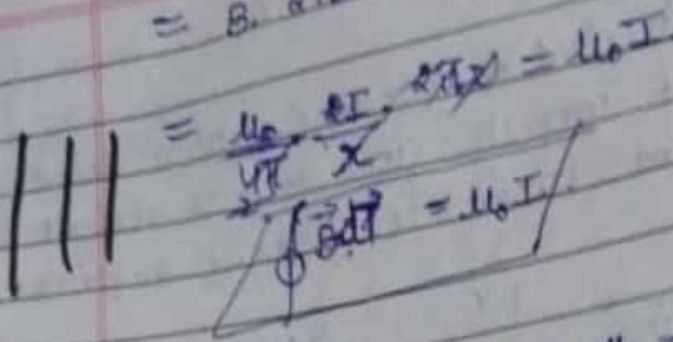 = B.
= μ₀/4π · 2I/x · 2πx = μ₀I
∮ B⃗ dl⃗ = μ₀I